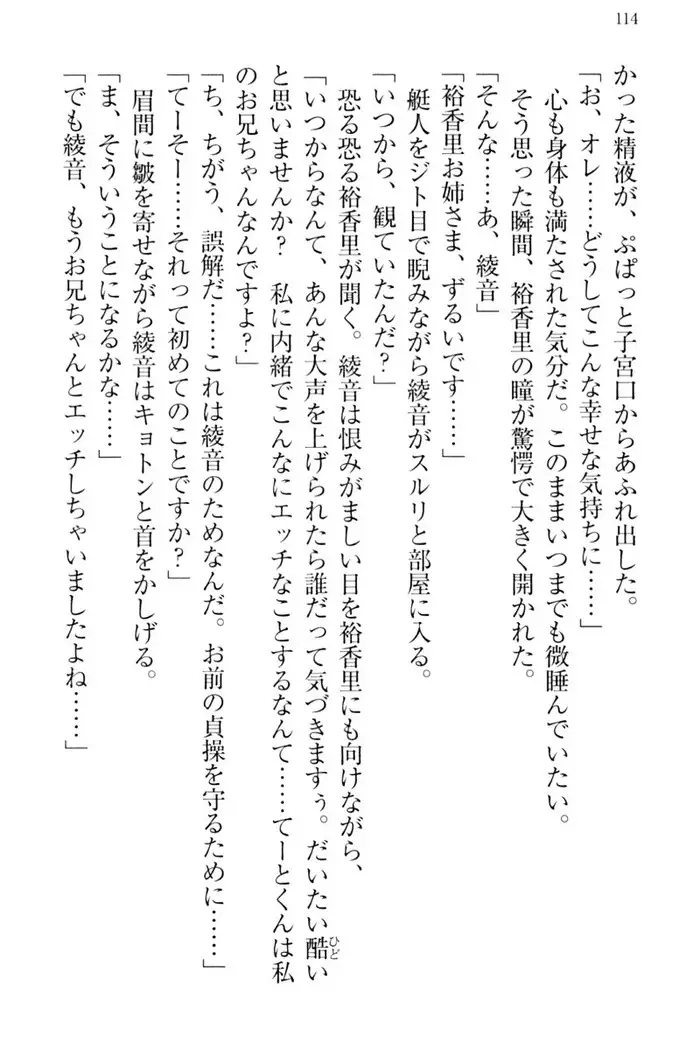 114
かった精液が、ぷぱっと子宮口からあふれ出した。
「お、オレ……どうしてこんな幸せな気持ちに……」
心も身体も満たされた気分だ。このままいつまでも微睡んでいたい。
そう思った瞬間、裕香里の瞳が驚愕で大きく開かれた。
「そんな……あ、綾音」
「裕香里お姉さま、ずるいです……」
艇人をジト目で睨みながら綾音がスルリと部屋に入る。
「いつから、観ていたんだ?」
恐る恐る裕香里が聞く。綾音は恨みがましい目を裕香里にも向けながら、
「いつからなんて、あんな大声を上げられたら誰だって気づきますぅ。だいたい酷い
ひど
と思いませんか? 私に内緒でこんなにエッチなことするなんて……てーとくんは私
のお兄ちゃんなんですよ?」
「ち、ちがう、誤解だ……これは綾音のためなんだ。お前の貞操を守るために……」
「てーそー……それって初めてのことですか?」
眉間に皺を寄せながら綾音はキョトンと首をかしげる。
「ま、そういうことになるかな……」
「でも綾音、もうお兄ちゃんとエッチしちゃいましたよね……」